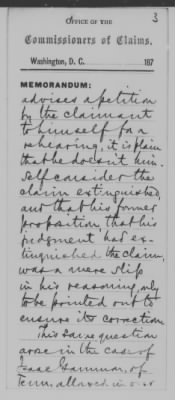 3
OFFICE OF THE
Commissioners of Claims,
Washington, D. C. 187
MEMORANDUM:
advises a petition
by the claimant
to himself for a
rehearing, it is plain
that he doesn't him-
self consider the
claim extinguished,
and that his former
proposition, that his
judgment had ex-
tinguished the claim,
was a mere slip
in his reasoning, only
to be pointed out to
ensure its correction.
This same question
arose in the case of
Isaac Gammon, of
Tenn., allowed in